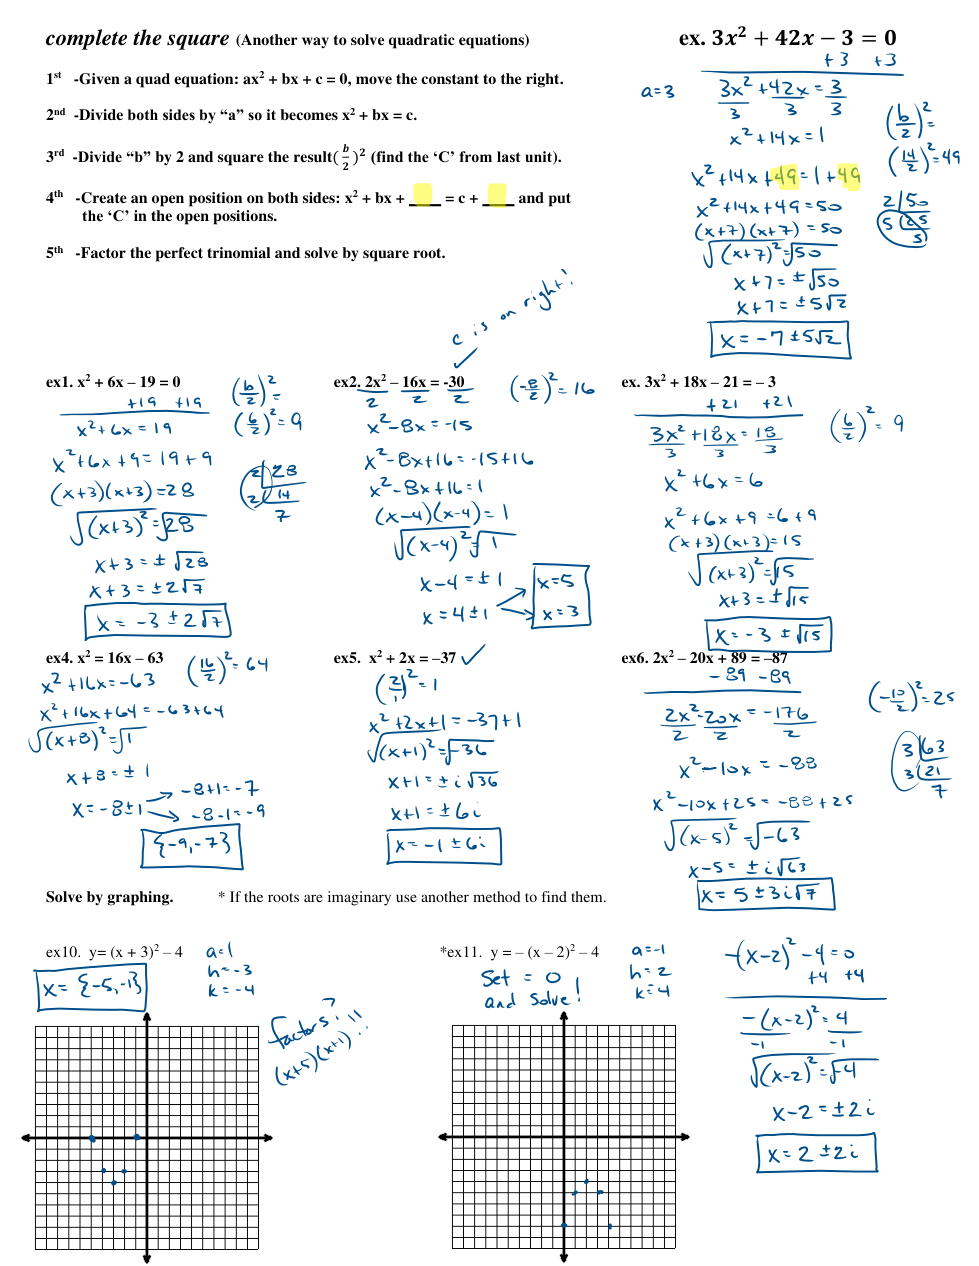 complete the square (Another way to solve quadratic equations)
1st -Given a quad equation: ax² + bx + c = 0, move the constant to the right.
2nd -Divide both sides by “a” so it becomes x² + bx = c.
3rd -Divide “b” by 2 and square the result(b/2)² (find the ‘C’ from last unit).
4th -Create an open position on both sides: x² + bx + ___ = c + ___ and put
the ‘C’ in the open positions.
5th -Factor the perfect trinomial and solve by square root.
ex. 3x² + 42x − 3 = 0
+3 +3
a=3
3x²/3 + 42x/3 = 3/3
x²+14x=1
(b/2)²=
(14/2)²=49
x²+14x+49=1+49
x²+14x+49=50
(x+7)(x+7)=50
√(x+7)²=√50
2/50
5 /25
5
x+7=±√50
x+7=±5√2
x=-7±5√2
c is on right!
ex1. x² + 6x – 19 = 0
+19 +19
(b/2)²=
(6/2)²=9
x²+6x=19
x²+6x+9=19+9
(x+3)(x+3)=28
2/28
2/14
7
√(x+3)²=√28
x+3=±√28
x+3=±2√7
x=-3±2√7
ex2. 2x² – 16x = -30
2 2 2
(-8/2)²=16
x²-8x=-15
x²-8x+16=-15+16
x²-8x+16=1
(x-4)(x-4)=1
√(x-4)²=√1
x-4=±1
x=4±1
x=5
x=3
ex. 3x² + 18x – 21 = – 3
+21 +21
3x²/3 + 18x/3 = 18/3
(6/2)²=9
x²+6x=6
x²+6x+9=6+9
(x+3)(x+3)=15
√(x+3)²=√15
x+3=±√15
x=-3±√15
ex4. x² = 16x – 63
(16/2)²=64
x²+16x=-63
x²+16x+64=-63+64
√(x+8)²=√1
x+8=±1
x=-8±1
-8+1=-7
-8-1=-9
{-9,-7}
ex5. x² + 2x = –37 ✓
(2/1)²=1
x²+2x+1=-37+1
√(x+1)²=√-36
x+1=±i√36
x+1=±6i
x=-1±6i
ex6. 2x² – 20x + 89 = –87
-89 -89
2x²/2 - 20x/2 = -176/2
(-10/2)²=25
x²-10x=-88
3/63
3/21
7
x²-10x+25=-88+25
√(x-5)²=√-63
x-5=±i√63
x=5±3i√7
Solve by graphing. * If the roots are imaginary use another method to find them.
ex10. y= (x + 3)² – 4
a=1
h=-3
k=-4
x={-5,-1}
factors?
(x+5)(x+1)!!
*ex11. y = – (x – 2)² – 4
a=-1
h=2
k=4
Set = 0
and solve!
-(x-2)²-4=0
+4 +4
-(x-2)²/-1 = 4/-1
√(x-2)²=√-4
x-2=±2i
x=2±2i